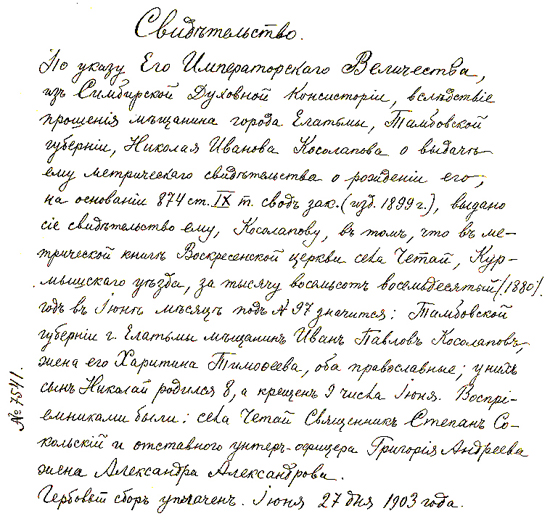 Свидѣтельство.
По указу Его Императорскаго Величества,
изъ Симбирской Духовной Консисторіи, вслѣдствіе
прошенія мѣщанина города Елатьмы, Тамбовской
губерніи, Николая Иванова Косолапова о выдачѣ
ему метрическаго свидѣтельства о рожденіи его,
на основаніи 874 ст. IX т. свод. зак. (изд. 1899 г.), выдано
сіе свидѣтельство ему, Косолапову, въ томъ, что въ ме-
трической книгѣ Воскресенской церкви села Четай, Кур-
мышскаго уѣзда, за тысячу восемьсотъ восемьдесятый (1880)
годъ въ Іюнѣ мѣсяцѣ подъ № 97 значится: Тамбовской
губерніи г. Елатьмы мѣщанинъ Иванъ Павловъ Косолаповъ,
жена его Харитина Тимоѳеева, оба православные; у нихъ
сынъ Николай родился 8, а крещенъ 9 числа Іюня. Воспрі-
емниками были: села Четай Священникъ Степанъ Со-
кольскій и отставного унтеръ-офицера Григорія Андреева
жена Александра Александрова.
Гербовый сборъ уплаченъ. Іюня 27 дня 1903 года.
№ 7541.